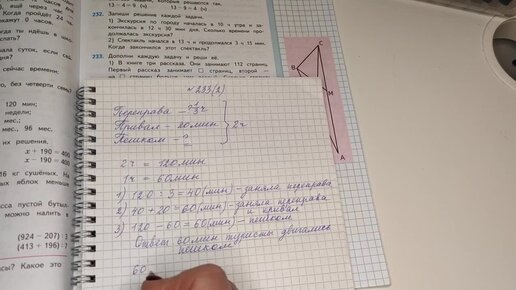 13 − 4 = 9 (ч)
13 − 9 = 4 (ч)
232. Запиши решение каждой задачи.
1) Экскурсия по городу началась в 10 ч утра и за-
кончилась в 12 ч 30 мин дня. Сколько времени про-
должалась экскурсия?
2) Спектакль начался в 13 ч и продолжался 3 ч 15 мин.
Когда закончился этот спектакль?
233. Дополни каждую задачу и реши её.
1) В книге три рассказа. Они занимают 112 страниц.
Первый рассказ занимает □ страниц, второй —
сейчас время:
без четверти семь
120 мин;
недели;
мес.;
мес., 96 мес.
их решения,
x + 190 = 400
x − 190 = 400
16 кг сушёных. На
яблок меньше
пустой бутыл-
можно налить в
(924 − 207) : 3
(413 + 196) : 7
Какое это
C
B
M
A
№ 233(2)
Переправа — 1/3 ч
Привал — 20 мин
Пешком — ?
2ч
2ч = 120 мин
1ч = 60 мин
1) 120 : 3 = 40 (мин) – заняла переправа
2) 40 + 20 = 60 (мин) – заняла переправа
и привал
3) 120 − 60 = 60 (мин) – пешком
Ответ: 60 мин туристы двигались
пешком
60